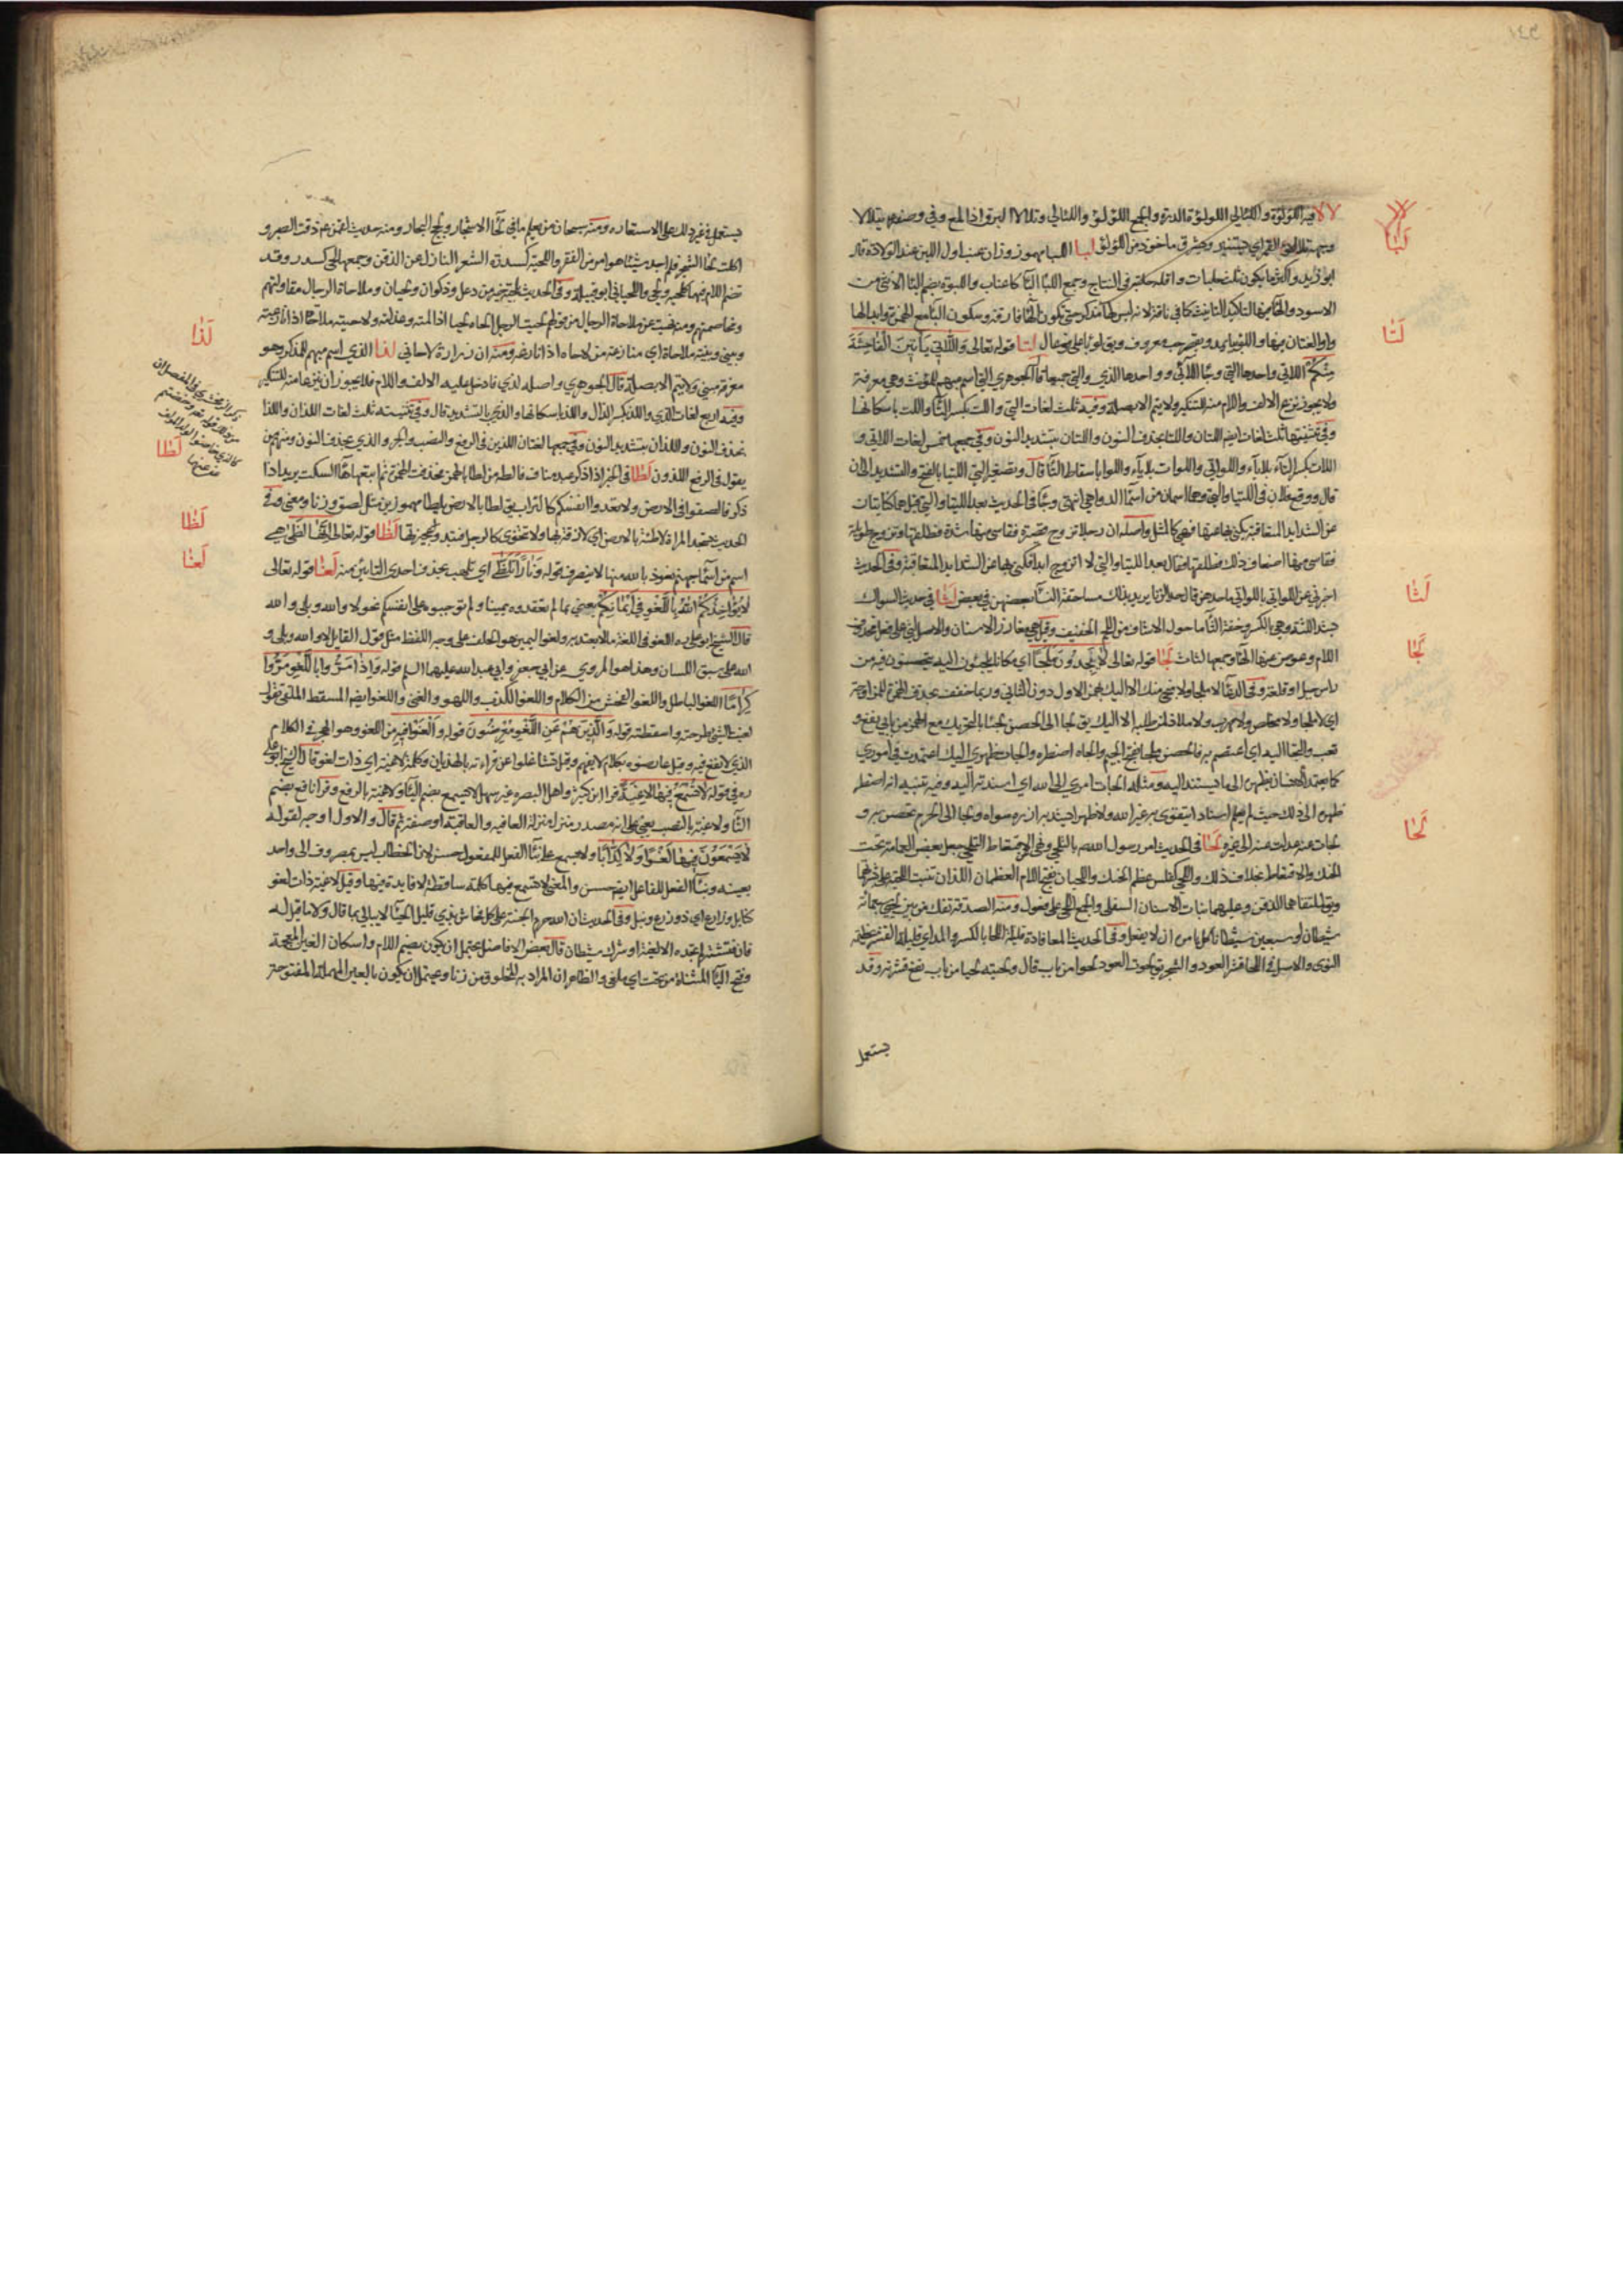 ١٤٣
لالا فيه اللؤلؤة واللئالي اللؤلؤة الدرة والجمع اللؤلؤ واللئالي وتلألأ البرق اذا لمع وفي وصفه يتلألأ
لبا
وجهه تلألؤ القمر اي يستنير ويشرق ماخوذ من اللؤلؤ لبا اللبا مهموز وزان عنب اول اللبن عند الولادة قال
ابو زيد واكثر ما يكون ثلث حلبات واقله حلبة في النتاج وجمع اللبا البا كاعناب واللبوة بضم البا الانثى من
الاسود والهاء فيها لتاكيد التانيث كما في ناقة لانه ليس لها مذكر حتى تكون الهاء فارقة وسكون الباء مع الهمزة وابدالها
لتا
واوا لغتان فيها واللوبيا لتا قوله تعالى وَاللَّاتِي يَأْتِينَ الْفَاحِشَةَ
مِنْكُمْ اللاتي واحدها التي وواحدها الذي والتي جميعا قال الجوهري التي اسم مبهم للمؤنث وهي معرفة
ولا يجوز نزع الالف واللام منه للتنكير ولا يتم الا بصلة وفيه ثلث لغات التي واللت بكسر التاء واللت باسكانها
وفي تثنيتها ثلث لغات ايضا اللتان واللتا بحذف النون واللتان بتشديد النون وفي جمعها خمس لغات اللاتي و
اللات بكسر التاء بلا ياء واللواتي واللوات بلا ياء واللوا باسقاط التاء قال وتصغير التي اللتيا بالفتح والتشديد الى ان
قال ووقع فلان في اللتيا والتي وهما اسمان من اسماء الدواهي انتهى وجاء في الحديث بعد اللتيا والتي قيل هما كنايتان
عن الشدايد المتعاقبة يكنى بهما عنها فهي كالمثل واصله ان رجلا تزوج قصيرة فقاسى منها شدة فطلقها وتزوج طويلة
فقاسى منها اضعاف ذلك فطلقها وقال بعد اللتيا والتي لا اتزوج ابدا فكنى بهما عن الشدايد المتعاقبة وفي الحديث
لثا
اخبرني عن اللواتي باللواتي ماحدهن قال حد الزنا يريد بذلك مساحقة النساء بعضهن في بعض لثا في حديث السواك
يشد اللثة وهي بالكسر وخفة الثاء ما حول الاسنان من اللحم وقيل هي مغارز الاسنان والاصل لثي على فعل فحذفت
لجا
اللام وعوض عنها الهاء وجمعها لثات لجا قوله تعالى لَا يَجِدُونَ مَلْجَأً اي مكانا يلجئون اليه يتحصنون فيه من
راس جبل او قلعة وفي الدعاء لا ملجا ولا منجى منك الا اليك بهمز الاول دون الثاني وربما خفف بحذف الهمزة للمزاوجة
اي لا ملجا ولا مخلص ولا مهرب ولا ملاذ لمن طلبته الا اليك يق لجا الى الحصن لجئا بالتحريك مع الهمزة من بابي نفع و
تعب والتجا اليه اي اعتصم به فالحصن ملجا بفتح الجيم والجاه اضطره والجات ظهري اليك اعتمدت في اموري
كما يعتمد الانسان بظهره الى ما يستند اليه ومثله الجات امري الى الله اي اسندته اليه وفيه تنبيه انه اضطر
ظهره الى ذلك حيث لم يعلم استنادا يتقوى به غير الله ولا ظهرا يشد به ازره سواه ولجا الى الحرم تحصن به و
لحا
لجات عنه عدلت عنه الى غيره لحا في الحديث امر رسول الله ص بالتلحي ونهى عن الاقتعاط التلحي جعل بعض العمامة تحت
الحنك والاقتعاط بخلاف ذلك واللحى كفلس عظم الحنك واللحيان بفتح اللام العظمان اللذان تنبت اللحية على بشرتهما
ويق لملتقاهما الذقن وعليهما نبات الاسنان السفلى والجمع لحي على فعول ومنه الصدقة تفك من بين لحيي سبعمائة
شيطان او سبعين شيطانا كل يامره ان لا يفعل وفي الحديث قليلة اللحا بالكسر والمد اي قليلة القشر عظيمة
النوى والاصل في اللحا قشر العود والشجر يق لحوت العود لحوا من باب قال ولحيته لحيا من باب نفع قشرته وقد
يستعمل
يستعمل في غير ذلك على الاستعارة ومنه سبحان من يعلم ما في لحا الاشجار ولجج البحار ومنه حديث لقمن ذقت الصبر و
اكلت لحا الشجر فلم اجد شيئا هو امر من الفقر واللحية كسدرة الشعر النازل على الذقن وجمعها لحى كسدر وقد
تضم اللام فيهما كحلية وحلى واللحياني ابو قبيلة وفي الحديث لحيته خير من رعل وذكوان ولحيان وملاحاة الرجال مقاولتهم
ومخاصمتهم ومنه نهيت عن ملاحاة الرجال من قولهم لحيت الرجل الحاه لحيا اذا لمته وعذلته ولاحيته ملاحاة اذا نازعته
لذا
وبيني وبينه ملاحاة اي منازعة من لاحاه اذا نازعه ومنه ان زرارة لاحاني لذا الذي اسم مبهم للمذكر وهو
معرفة مبني ولا يتم الا بصلة قال الجوهري واصله لذي فادخل عليه الالف واللام فلا يجوز ان ينزعا منه للتنكير
وفيه اربع لغات الذي واللذ بكسر الذال واللذ باسكانها والذي بالتشديد قال وفي تثنيته ثلث لغات اللذان واللذا
لطا
بحذف النون واللذان بتشديد النون وفي جمعها لغتان الذين في الرفع والنصب والجر والذي بحذف النون ومنهم من
يقول في الرفع اللذون لطا في الخبر اذا ذكر عبد مناف فالطه من لطا بالهمز فحذفت الهمزة ثم اتبعها هاء السكت يريد اذا
لظا
ذكر فالصقوا في الارض ولا تعدوا انفسكم وكونوا كالتراب يق لطا بالارض يلطا مهموزين مثل لصق وزنا ومعنى وفي
الحديث تسجد المراة لاطئة بالارض اي لازقة بها ولا تتخوى كالرجل لظا قوله تعالى إِنَّهَا لَظَى هي
لغا
اسم من اسماء جهنم نعوذ بالله منها لا ينصرف قوله نَارًا تَلَظَّى اي تلهب بحذف احدى التائين منه لغا قوله تعالى
لَا يُؤَاخِذُكُمُ اللهُ بِاللَّغْوِ فِي أَيْمَانِكُمْ يعني بما لم تعقدوه يمينا ولم توجبوه على انفسكم نحو لا والله وبلى والله
قال الشيخ ابو علي ره اللغو في اللغة ما لا يعتد به ولغو اليمين هو الحلف على وجه اللفظ مثل قول القايل لا والله وبلى و
الله على سبق اللسان وهذا هو المروي عن ابي جعفر وابي عبدالله عليهما السلم قوله وَإِذَا مَرُّوا بِاللَّغْوِ مَرُّوا
كِرَامًا اللغو الباطل واللغو الفحش من الكلام واللغو الكذب واللهو والغنى واللغو ايضا المسقط الملقى تقول
لغيت الشي طرحته واسقطته قوله وَالَّذِينَ هُمْ عَنِ اللَّغْوِ مُعْرِضُونَ قوله وَالْغَوْا فِيهِ من اللغو وهو الهجر في الكلام
الذي لا نفع فيه وقيل عارضوه بكلام لا يفهم وقيل تشاغلوا عن قراءته بالهذيان وكلمة لاغية اي ذات لغو قال الشيخ ابو علي
ره في قوله لَا تَسْمَعُ فِيهَا لَاغِيَةً قرا ابن كثير واهل البصرة غير سهل لا يسمع بضم الياء ولاغية بالرفع وقرا نافع بضم
التاء ولاغية بالنصب يعني على انه مصدر منزل منزلة العافية والعاقبة او صفة ثم قال والاول اوجه لقوله
لَا يَسْمَعُونَ فِيهَا لَغْوًا وَلَا كِذَّابًا ولا تسمع على بناء الفعل للمفعول حسن لان الخطاب ليس بمصروف الى واحد
بعينه وبناء الفعل للفاعل ايضا حسن والمعنى لا تسمع فيها كلمة ساقطة لا فايدة فيها وقيل لاغية ذات لغو
كنابل ودارع اي ذو درع ونبل وفي الحديث ان الله حرم الجنة على كل فحاش بذي قليل الحياء لا يبالي بما قال ولا ما قيل له
فان فتشته لم تجده الا لغية او شرك شيطان قال بعض الافاضل يحتمل ان يكون بضم اللام واسكان الغين المعجمة
وفتح الياء المثناة من تحت اي ملغى والظاهر ان المراد به المخلوق من زنا ويحتمل ان يكون بالعين المهملة المفتوحة